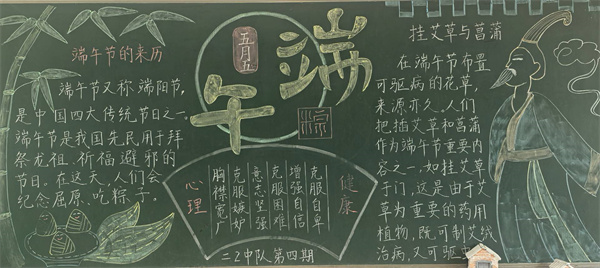 端午节的来历
端午节又称端阳节,
是中国四大传统节日之一,
端午节是我国先民用于拜
祭龙祖、祈福避邪的
节日。在这天,人们会
纪念屈原、吃粽子。
五月五
端午
挂艾草与菖蒲
在端午节布置
可驱病的花草,
来源亦久。人们
把插艾草和菖蒲
作为端午节重要内
容之一,如挂艾草
于门,这是由于艾
草为重要的药用
植物,既可制艾绒
治病,又可驱虫
心理
健康
胸襟宽广
克服嫉妒
意志坚强
克服困难
增强自信
克服自卑
二2中队第四期